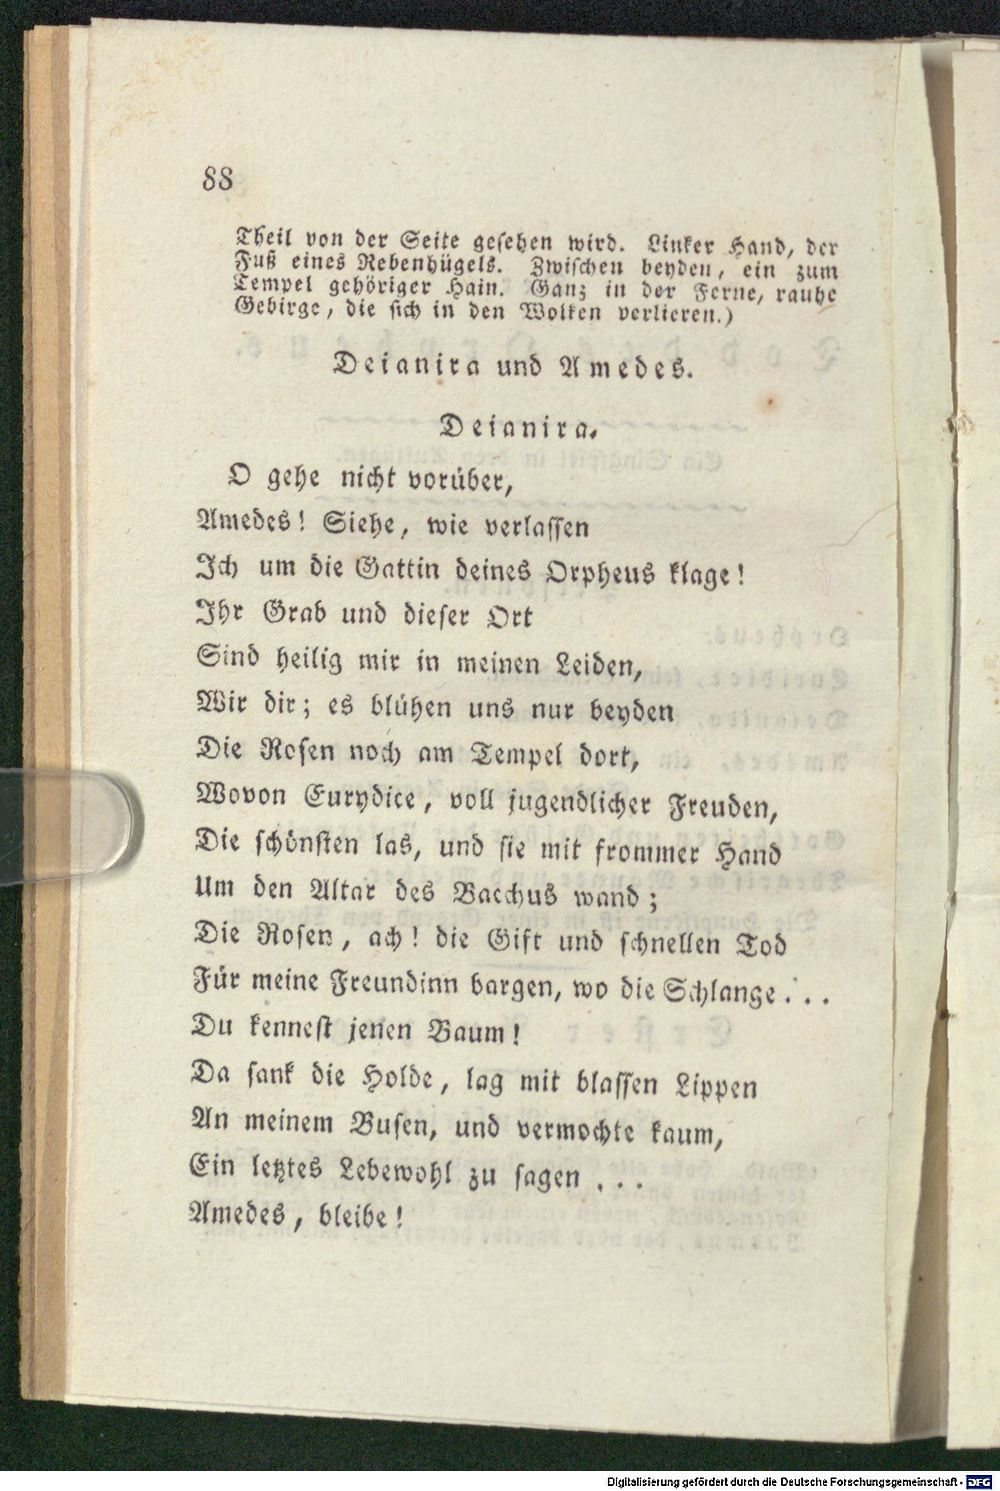 88
Theil von der Seite gesehen wird. Linker Hand, der
Fuß eines Rebenhügels. Zwischen beyden, ein zum
Tempel gehöriger Hain. Ganz in der Ferne, rauhe
Gebirge, die sich in den Wolken verlieren.)
Deianira und Amedes.
Deianira.
O gehe nicht vorüber,
Amedes! Siehe, wie verlassen
Ich um die Gattin deines Orpheus klage!
Ihr Grab und dieser Ort
Sind heilig mir in meinen Leiden,
Wir dir; es blühen uns nur beyden
Die Rosen noch am Tempel dort,
Wovon Eurydice, voll jugendlicher Freuden,
Die schönsten las, und sie mit frommer Hand
Um den Altar des Bacchus wand;
Die Rosen, ach! die Gift und schnellen Tod
Für meine Freundinn bargen, wo die Schlange...
Du kennest jenen Baum!
Da sank die Holde, lag mit blassen Lippen
An meinem Busen, und vermochte kaum,
Ein letztes Lebewohl zu sagen ...
Amedes, bleibe!
Digitalisierung gefördert durch die Deutsche Forschungsgemeinschaft - DFG